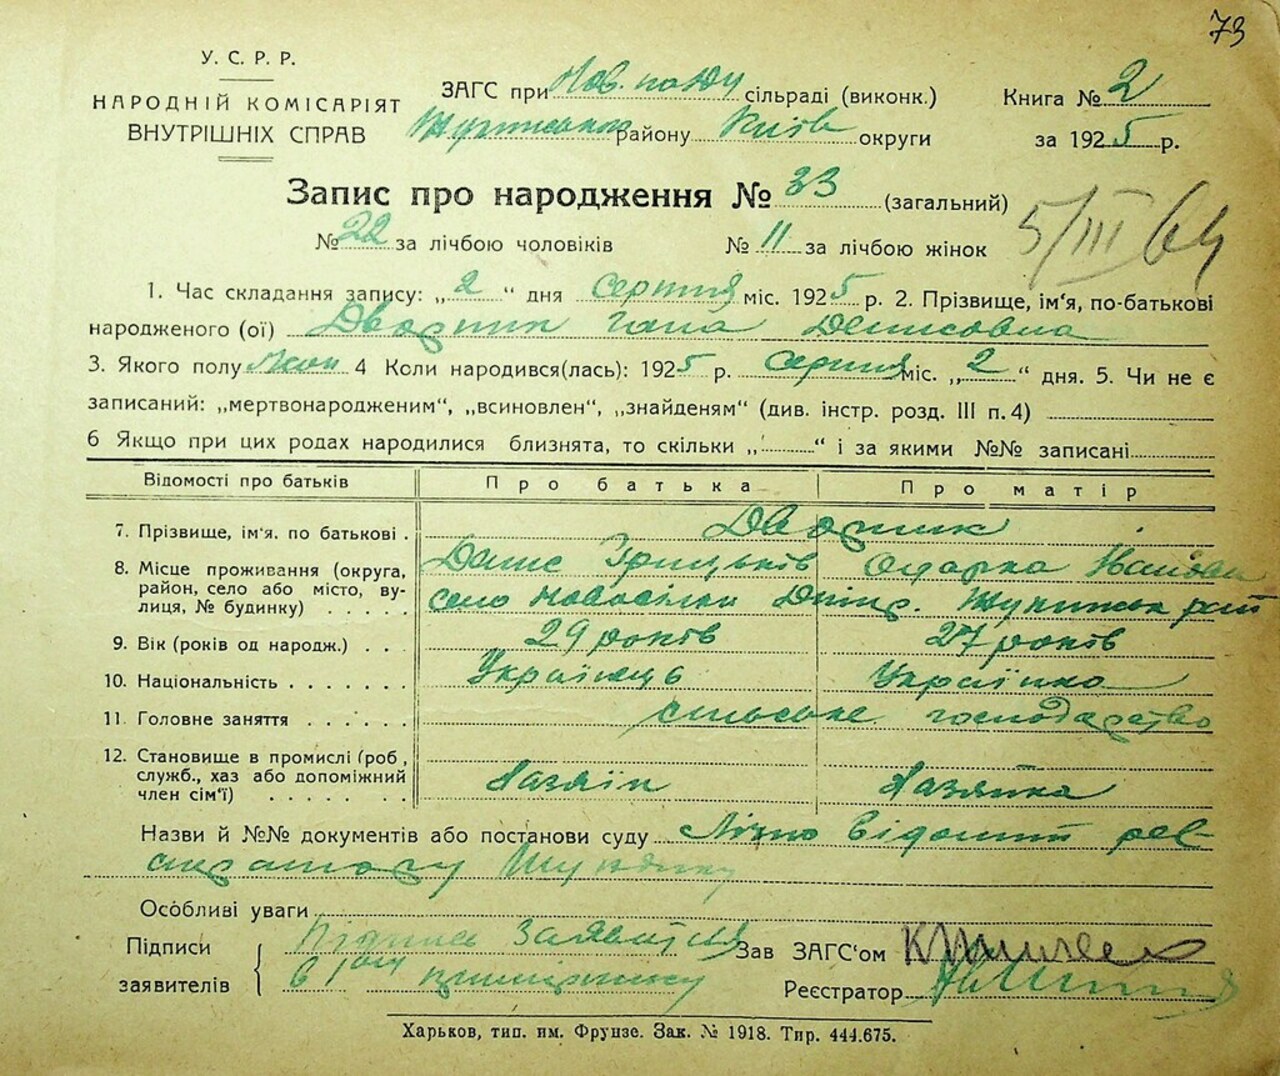 73
У. С. Р. Р.
НАРОДНІЙ КОМІСАРІЯТ
ВНУТРІШНІХ СПРАВ
ЗАГС при сільраді (виконк.)
району Київ округи
Книга № 2
за 1925 р.
Запис про народження № 33 (загальний)
№ 22 за лічбою чоловіків № 11 за лічбою жінок
5/III 64
1. Час складання запису: „ 2 “ дня серпня міс. 1925 р. 2. Прізвище, ім'я, по-батькові
народженого (ої) Дворник Гапа Денисовна
3. Якого полу жон 4 Коли народився(лась): 1925 р. серпня міс. „ 2 “ дня. 5. Чи не є
записаний: „мертвонародженим“, „всиновлен“, „знайденям“ (див. інстр. розд. III п. 4)
6 Якщо при цих родах народилися близнята, то скільки „ “ і за якими №№ записані
Відомості про батьків Про батька Про матір
7. Прізвище, ім'я. по батькові . Дворник
8. Місце проживання (округа, Данис Грицьків Одарка Іванова
район, село або місто, ву- село Новосілки Дніпр.
лиця, № будинку) . . . . .
9. Вік (років од народж.) . . . 29 років 27 років
10. Національність . . . . . . . Українець Українка
11. Головне заняття . . . . . . сільське господарство
12. Становище в промислі (роб,
служб., хаз або допоміжний Хазяїн Хазяйка
член сім'ї) . . . . . . .
Назви й №№ документів або постанови суду Лічно відомий реє-
стратору
Особливі уваги
Підписи Підписи заявителя Зав ЗАГС'ом
заявителів в 1ом примірнику Реєстратор
Харьков, тип. им. Фрунзе. Зак. № 1918. Тир. 444.675.